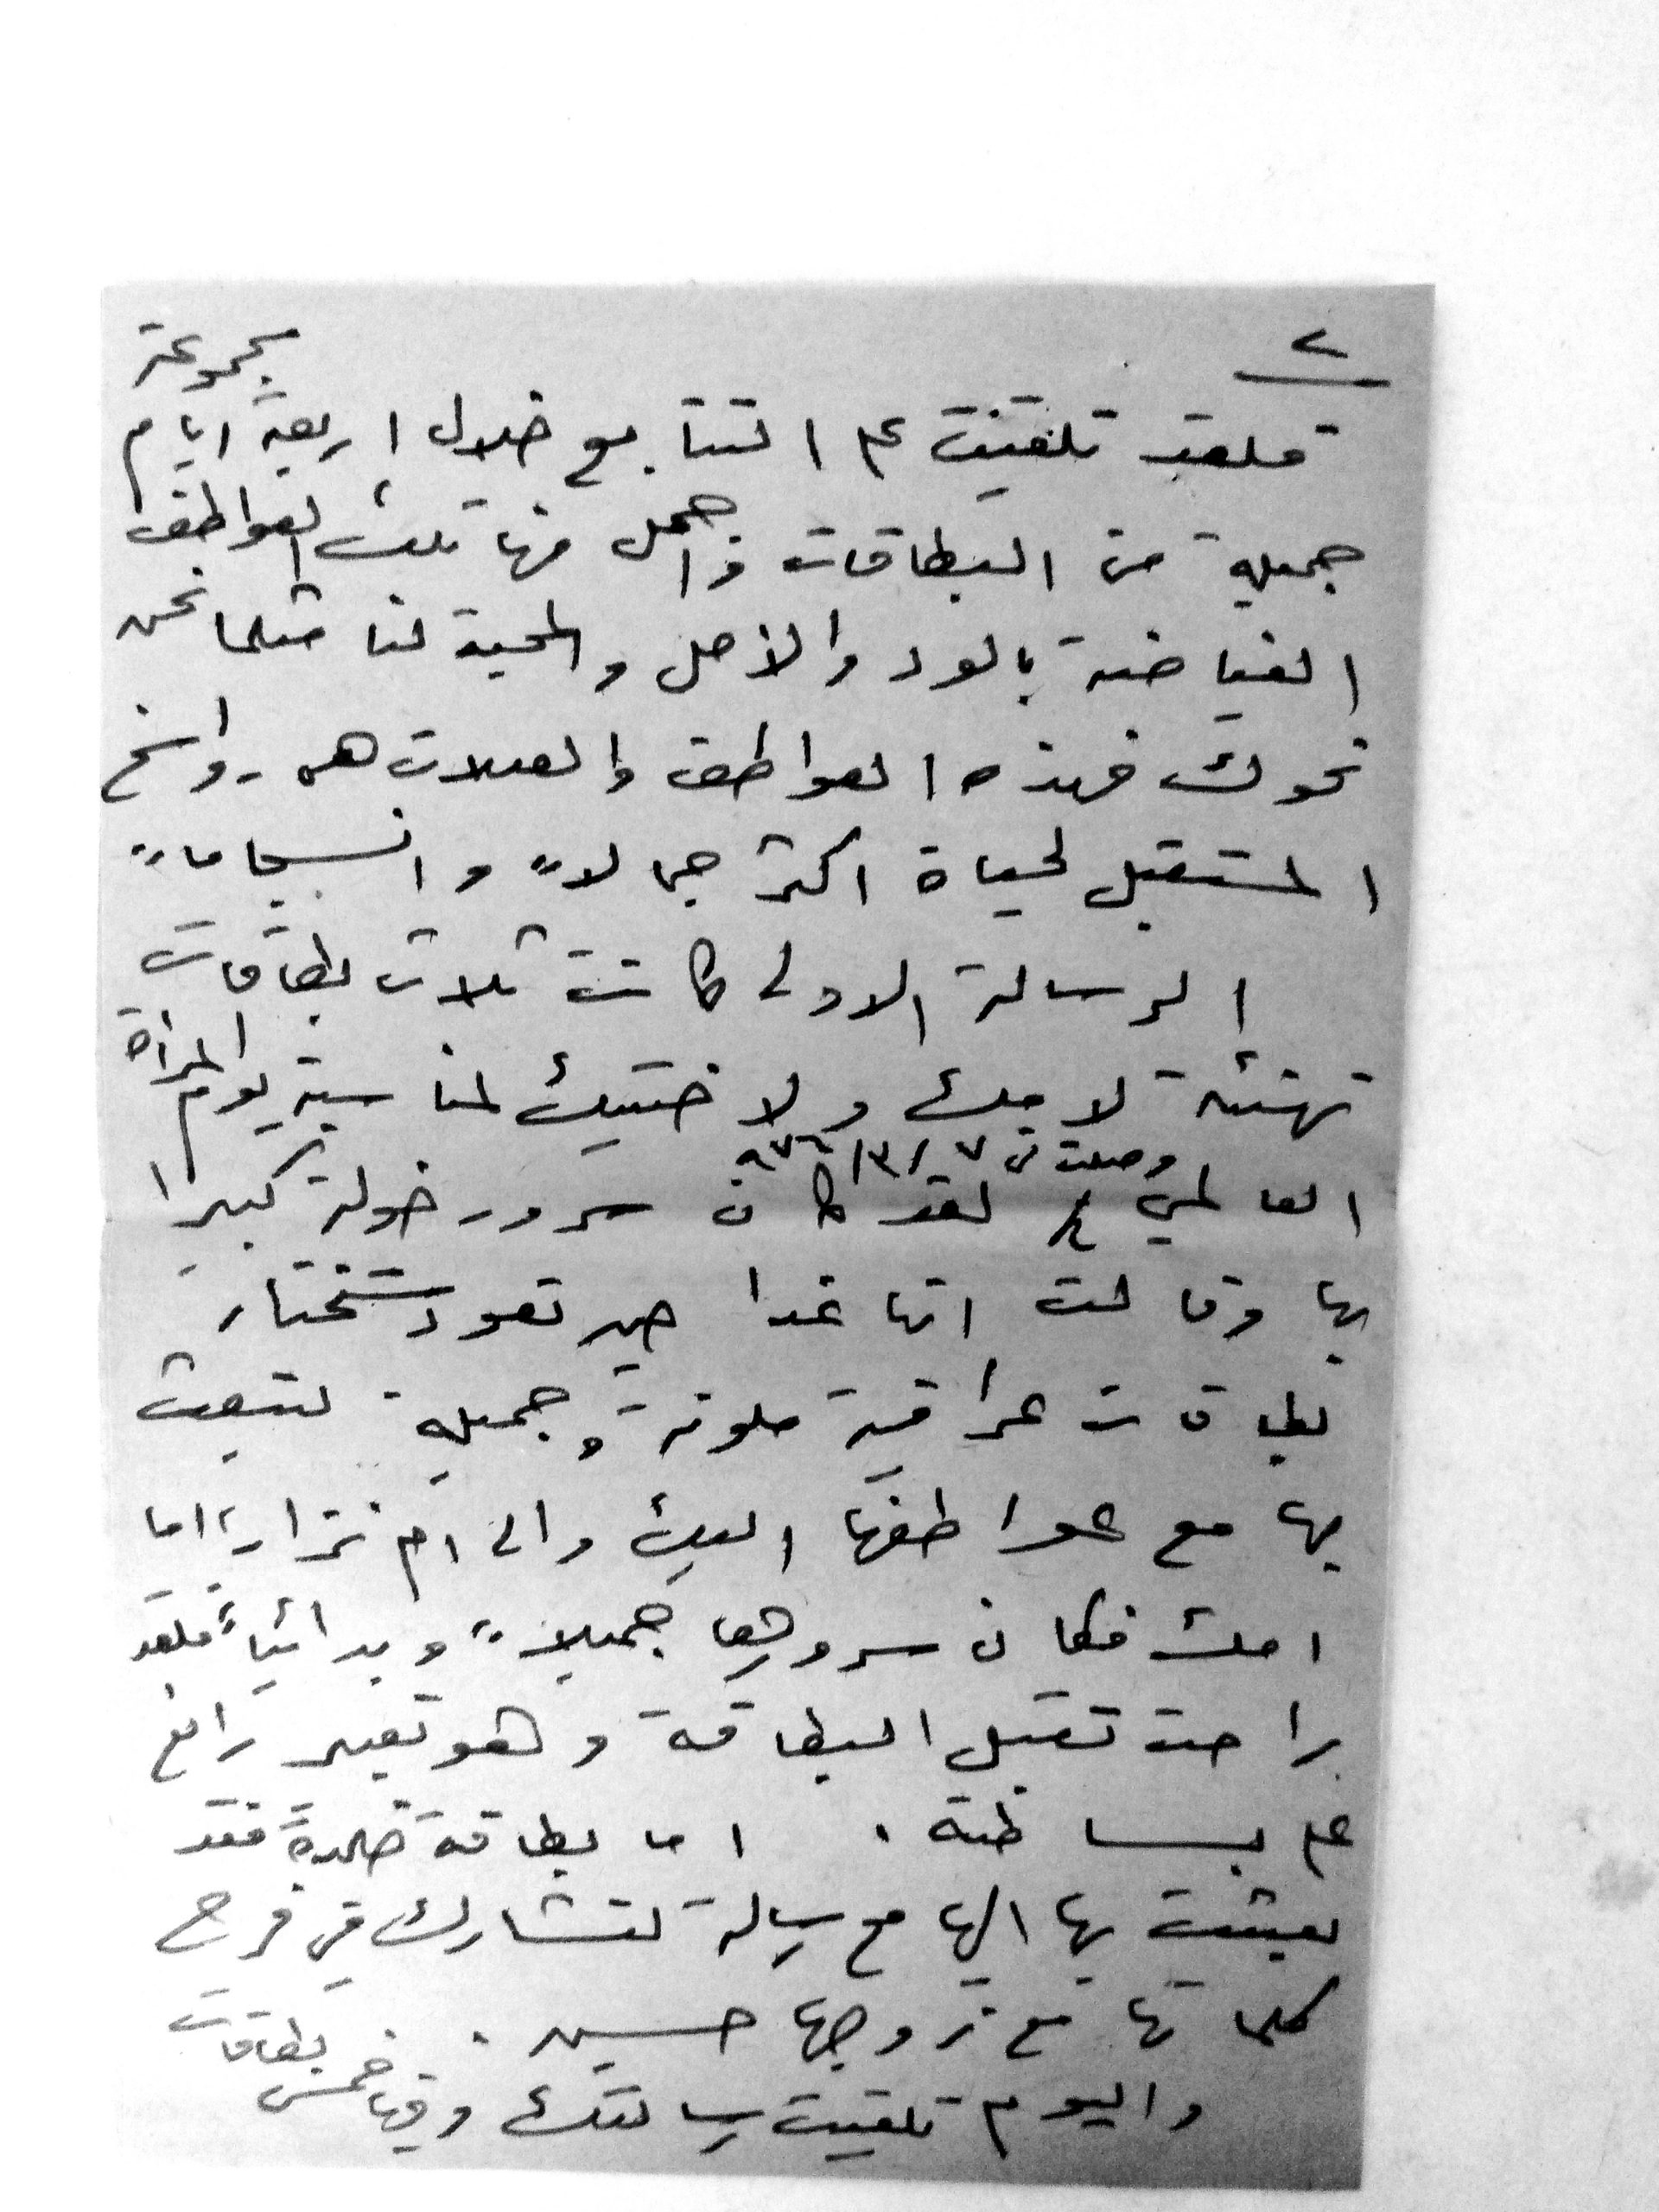 ٢
فلقد تلقيت على التتابع خلال اربعة ايام مجموعة
جميلة من البطاقات واجمل منها تلك العواطف
الفياضة بالود والأمل والمحبة لنا مثلما نحن
نحوك فهذه العواطف والصلات هي رواسخ
المستقبل لحياة اكثر جمالاً وانسجاماً
الرسالة الاولى كانت ثلاث بطاقات
تهنئة لامك ولاختيك لمناسبة يوم المرأة
العالمي وصلت في ٧/٣/٩٧٦ لقد كان سرور خولة كبيرا
بها وقالت انها غدا حين تعود ستختار
بطاقات عراقية ملونة وجميلة لتبعث
بها مع عواطفها اليك والى ام نزار، اما
امك فكان سرورها جميلاً وبدائياً فلقد
راحت تقبل البطاقة وهو تعبير رائع
على بساطته. اما بطاقة خالدة فقد
بعثت بها اليها مع رسالة لتشارك في فرح
كلماتها مع زوجها حسين.
واليوم تلقيت رسالتك وفيها خمس بطاقات